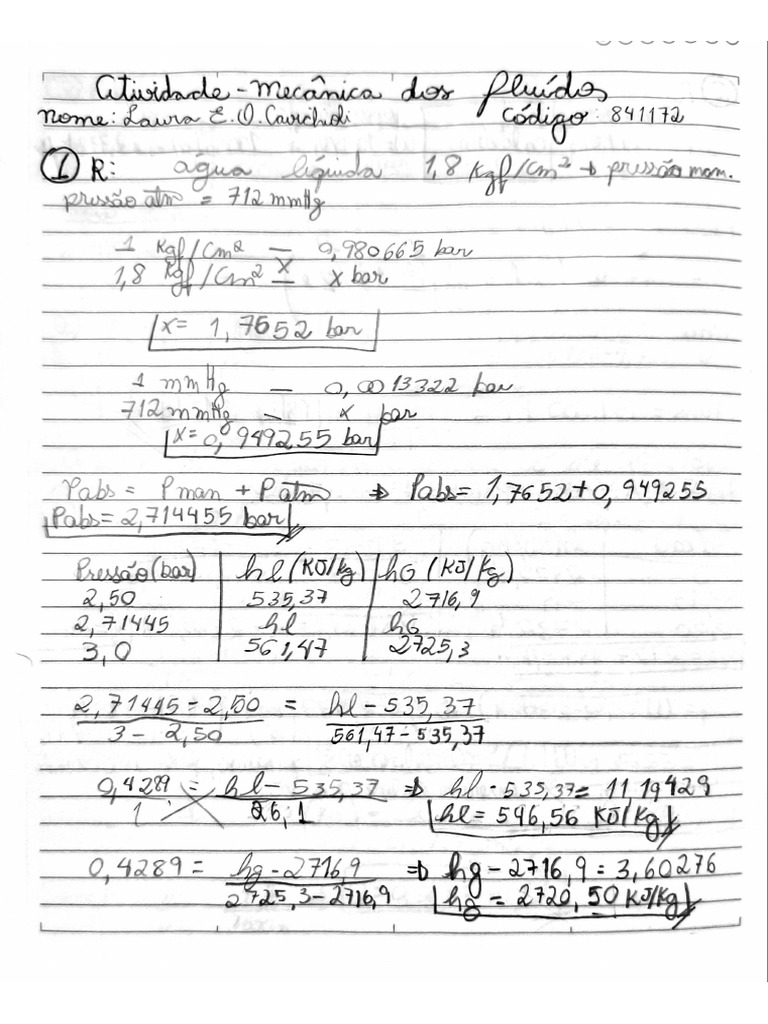 Atividade - Mecânica dos fluídos
Nome: Laura E. O. Cavichioli código: 841172
① R: água líquida 1,8 Kgf/cm² → pressão mam.
pressão atm = 712 mmHg
1 Kgf/cm² — 0,980665 bar
1,8 Kgf/cm² — x bar
x= 1,7652 bar
1 mmHg — 0,0013322 bar
712 mmHg — x bar
x=0,949255 bar
Pabs = Pman + Patm ⇒ Pabs= 1,7652+0,949255
Pabs=2,714455 bar
Pressão(bar) hl(KJ/kg) hG (KJ/kg)
2,50 535,37 2716,9
2,71445 hl hG
3,0 561,47 2725,3
2,71445 - 2,50 = hl - 535,37
3 - 2,50 561,47-535,37
0,4289 = hl - 535,37 ⇒ hl - 535,37= 11,19429
1 26,1 hl= 546,56 KJ/kg
0,4289 = hg - 2716,9 ⇒ hg - 2716,9 = 3,60276
2725,3-2716,9 hg = 2720,50 KJ/kg